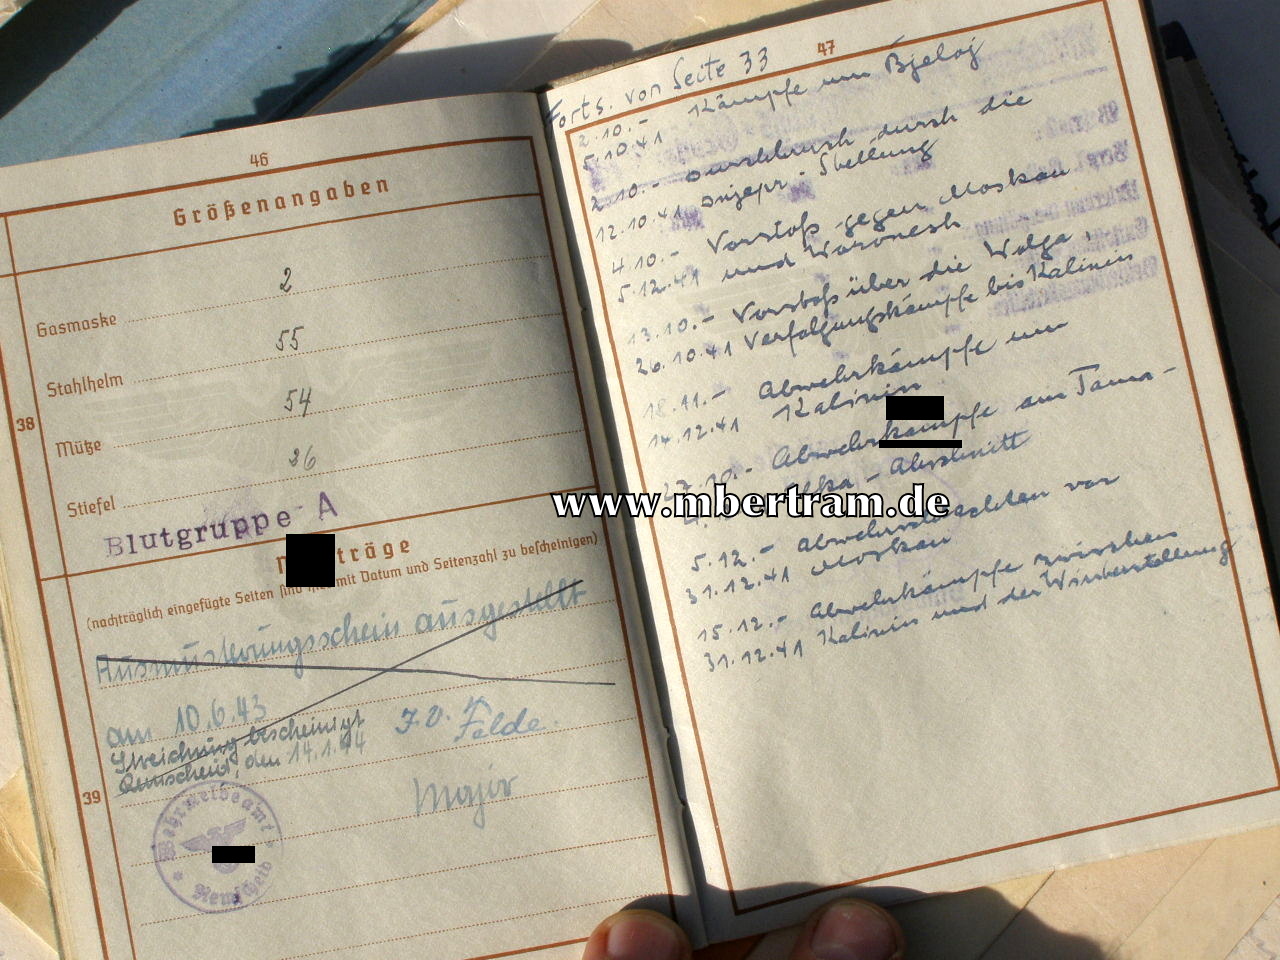 46
Größenangaben
38
Gasmaske 2
Stahlhelm 55
Mütze 54
Stiefel 26
Blutgruppe A
träge
(nachträglich eingefügte Seiten sind mit Datum und Seitenzahl zu bescheinigen)
39
Ausmusterungsschein ausgestellt
am 10.6.43
Streichung bescheinigt
Remscheid, den 14.1.44
I.V. Felde.
Major
Wehrmeldeamt
Remscheid
47
Forts. von Seite 33
2.10.- Kämpfe um Bjeloj
5.10.41
2.10.- Durchbruch durch die
12.10.41 Dnjepr-Stellung
4.10.- Vorstoß gegen Moskau
5.12.41 und Woronesh
13.10.- Vorstoß über die Wolga,
26.10.41 Verfolgungskämpfe bis Kalinin
18.11.- Abwehrkämpfe um
14.12.41 Kalinin
27.10.- Abwehrkämpfe am
-Abschnitt
5.12.- Abwehrschlachten vor
31.12.41 Moskau
15.12.- Abwehrkämpfe zwischen
31.12.41 Kalinin und der Winterstellung
www.mbertram.de